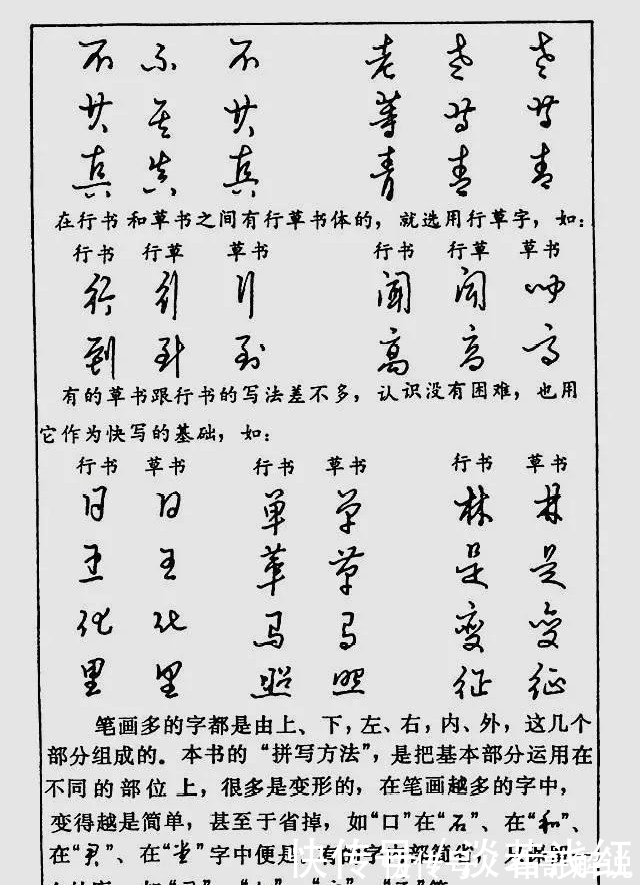 不 不 不 老 老 老
共 共 共 等 等 等
真 真 真 青 青 青
在行书和草书之间有行草书体的，就选用行草字，如：
行书 行草 草书 行书 行草 草书
行 行 行 闻 闻 闻
到 到 到 高 高 高
有的草书跟行书的写法差不多，认识没有困难，也用
它作为快写的基础，如：
行书 草书 行书 草书 行书 草书
日 日 单 单 林 林
王 王 革 革 是 是
化 化 马 马 变 变
里 里 照 照 征 征
笔画多的字都是由上、下，左、右，内、外，这几个
部分组成的。本书的“拼写方法”，是把基本部分运用在
不同的部位上，很多是变形的，在笔画越多的字中，
变得越是简单，甚至于省掉，如“口”在“石”、在“和”、
在“君”、在“堂”字中便是。有的字内部简省，
快传号